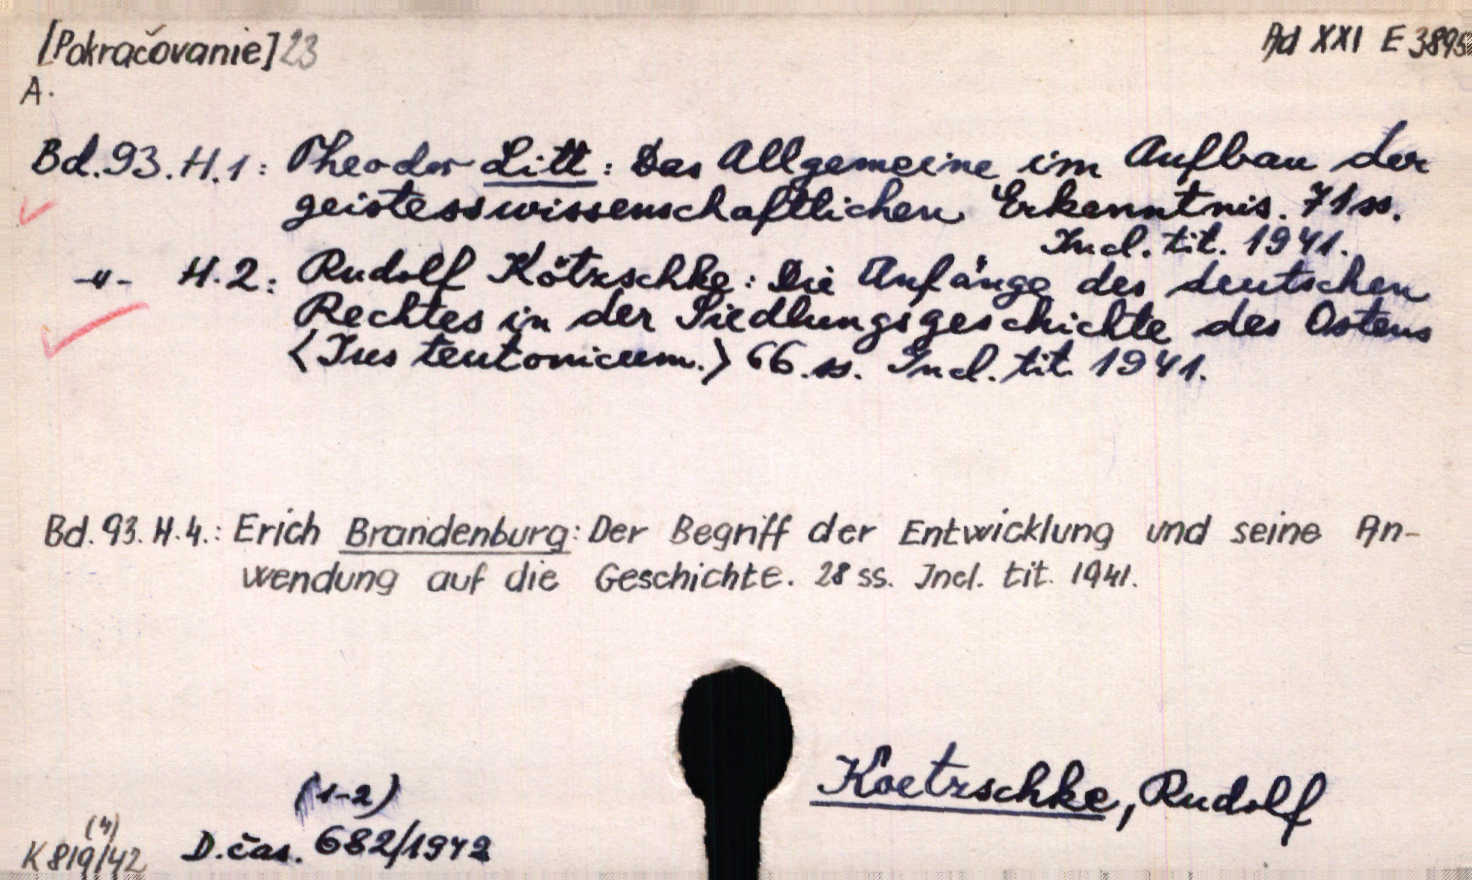 [Pokračovanie] 23 Ad XXI E 3895
A.
Bd. 93. H. 1: Theodor Litt: Das Allgemeine im Aufbau der
geistesswissenschaftlichen Erkenntnis. 71 ss.
Incl. tit. 1941.
-"- H. 2: Rudolf Kötzschke: Die Anfänge des deutschen
Rechtes in der Siedlungsgeschichte des Ostens
<Ius teutonicum.> 66. ss. Incl. tit. 1941.
Bd. 93. H. 4.: Erich Brandenburg: Der Begriff der Entwicklung und seine An-
wendung auf die Geschichte. 28 ss. Incl. tit. 1941.
Koetzschke, Rudolf
(1-2)
(4)
K 819/42 D. čas. 682/1942